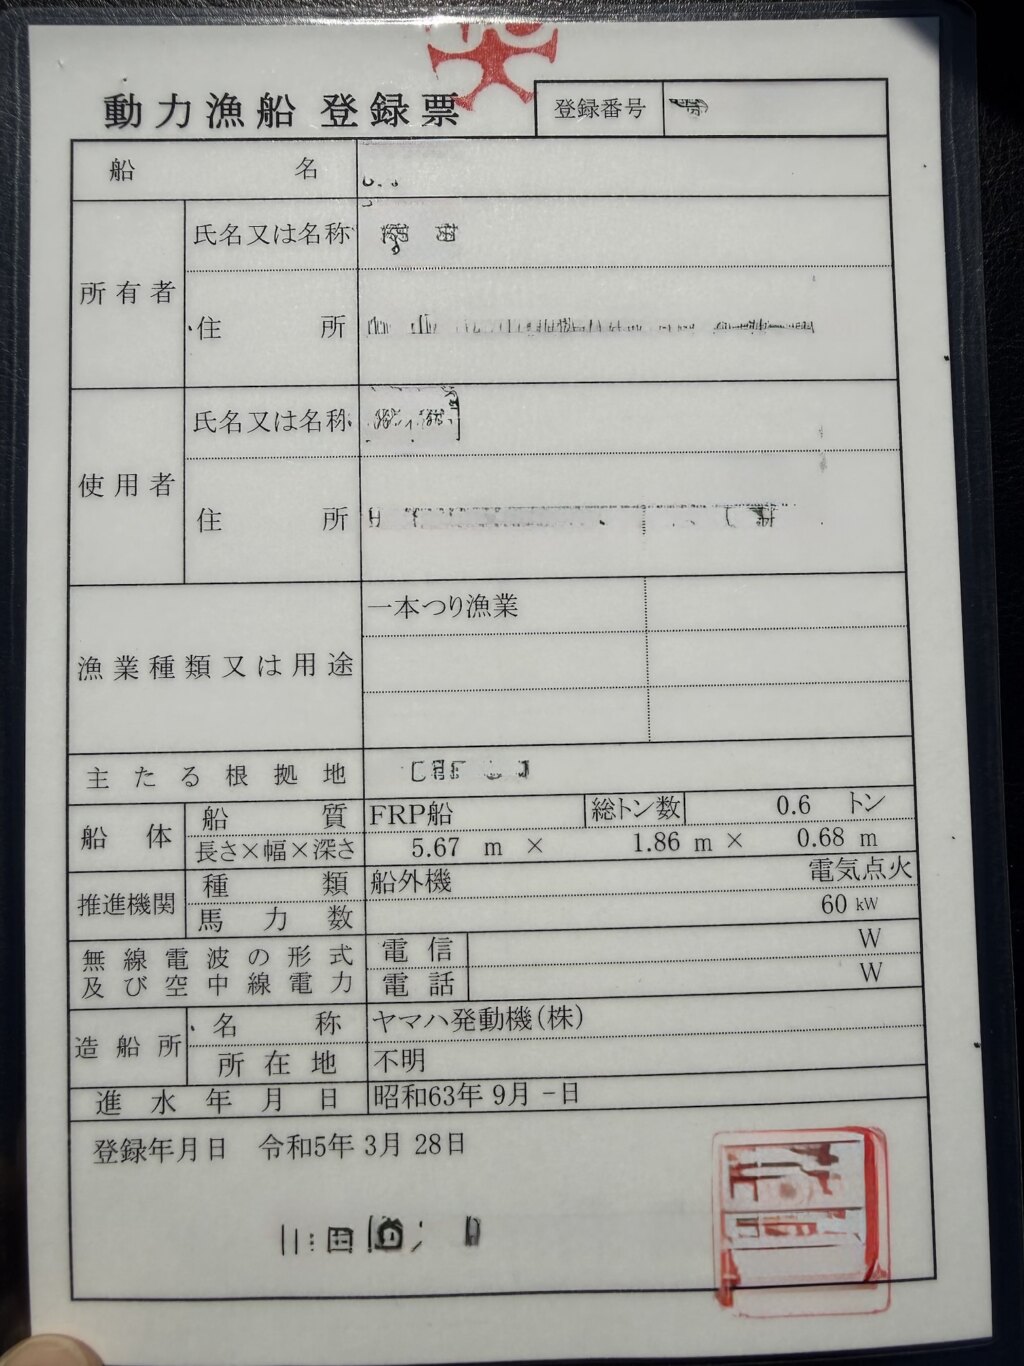 動力漁船 登録票
登録番号
船名
所有者
氏名又は名称
住所
使用者
氏名又は名称
住所
漁業種類又は用途
一本つり漁業
主たる根拠地
船体
船質 FRP船 総トン数 0.6 トン
長さ×幅×深さ 5.67 m × 1.86 m × 0.68 m
推進機関
種類 船外機 電気点火
馬力数 60 kW
無線電波の形式
及び空中線電力
電信 W
電話 W
造船所
名称 ヤマハ発動機(株)
所在地 不明
進水年月日 昭和63年 9月 -日
登録年月日 令和5年 3月 28日